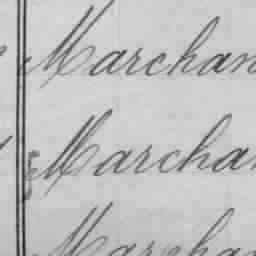 Marchan
Marchan
Marchan